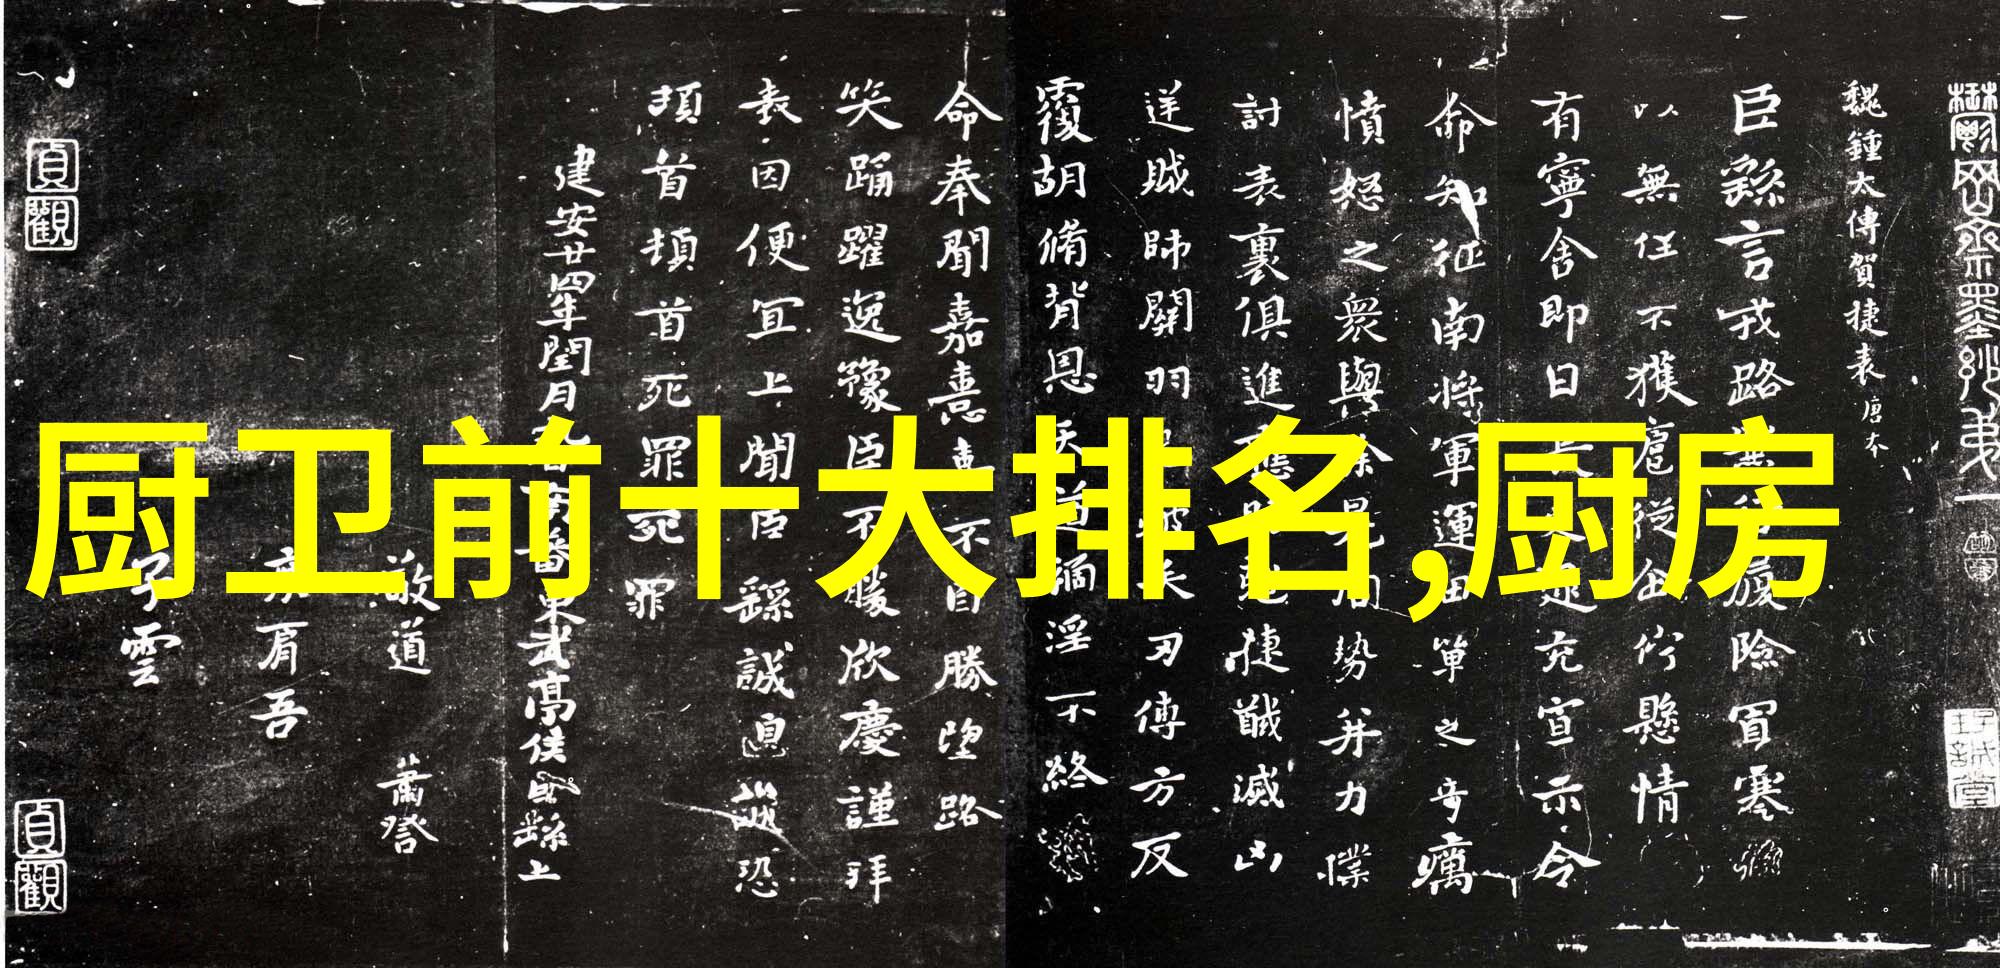 魏鍾太傅賀捷表唐本
臣繇言戎路兼行履險冒寒
以無任不獲扈從企佇懸情
有寧舍即日長史逯充宣示令
命知征南將軍運田單之奇厲
憤怒之眾與徐晃同勢并力撲
討表裏俱進應時剋捷馘滅凶
逆賊帥關羽已被矢刃傅方反
覆胡脩背恩天道禍淫不終
命奉聞嘉憙喜不自勝望路
笑踊躍逸豫臣不勝欣慶謹拜
表因便宜上聞臣繇誠惶誠恐
頓首頓首死罪死罪
建安廿四年閏月九日南蕃東武亭侯臣繇上
敬道
蕭誉
痕肩吾
子雲
貞觀
貞觀
厨卫前十大排名,厨房